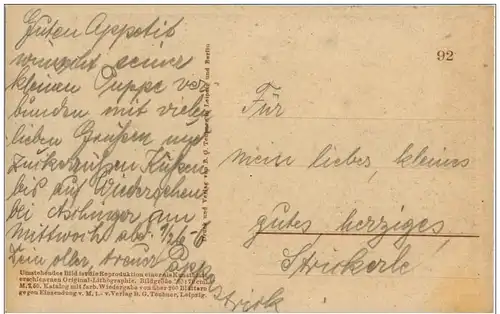 Guten Appetit
wünscht seiner
kleinen Puppe ver
bunden mit vielen
lieben Grüßen und
zuckersüßen Küssen
bis auf Wiedersehen
bei Aschinger am
Mittwoch abd.
Dein oller, treuer
92
Für
mein liebes, kleines
gutes, herziges,
Strickerle
Druck und Verlag von B. G. Teubner in Leipzig und Berlin
Umstehendes Bild ist die Reproduktion einer als Künstler
erschienenen Original-Lithographie. Bildgröße
Katalog mit farb. Wiedergabe von über 200 Blättern
gegen Einsendung v. M. 1.- v. Verlag B. G. Teubner, Leipzig.